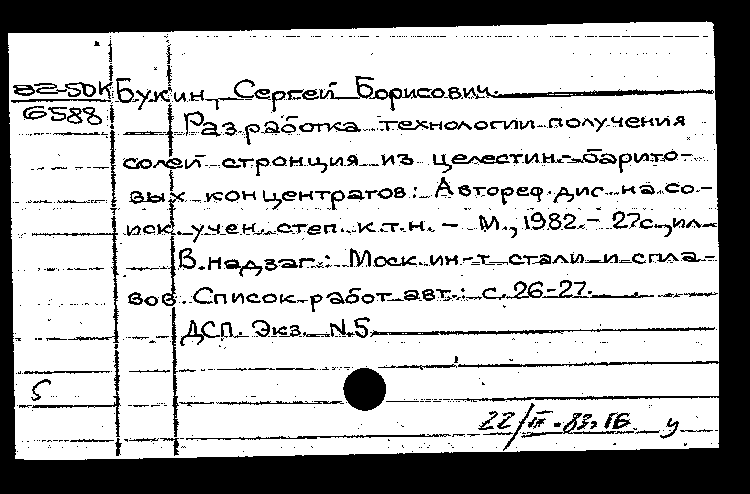 82-5DK Букин, Сергей Борисович.
6588
Разработка технологии получения
солей стронция из целестин-барито-
вых концентратов: Автореф. дис. на со-
иск. учен. степ. к.т.н. – М., 1982. – 27с., ил.
В надзаг.: Моск. ин-т стали и спла-
вов. Список работ авт.: с. 26-27.
ДСП. Экз. N5.
S
22/IX-83г. ГБ у